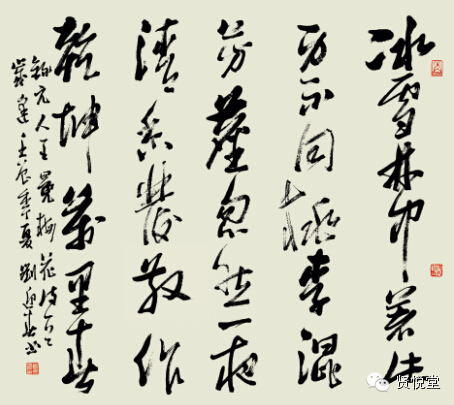 冰雪林中著此
身不同桃李混
芳塵忽然一夜
清香發散作
乾坤萬里春
錄元人王冕梅花诗
歲逢壬辰季夏劉迎春书
贤悦堂